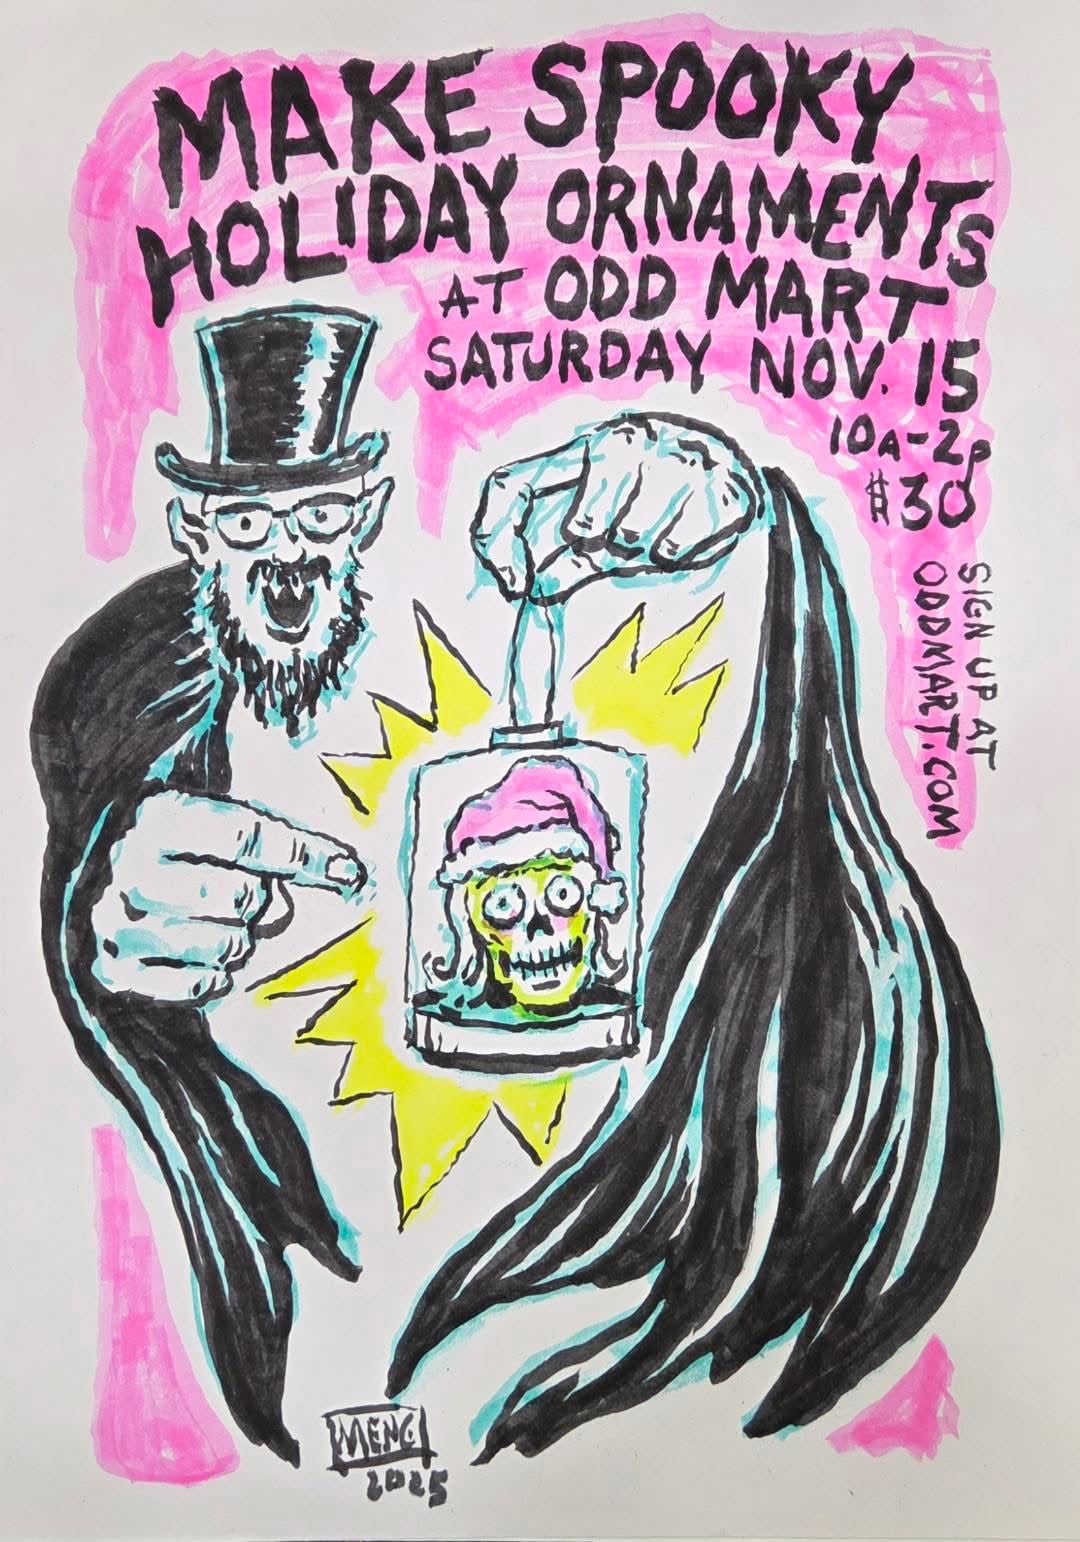 MAKE SPOOKY
HOLIDAY ORNAMENTS
AT ODD MART
SATURDAY NOV. 15
10A-2P
$30
SIGN UP AT
ODDMART.COM
MENG
2025